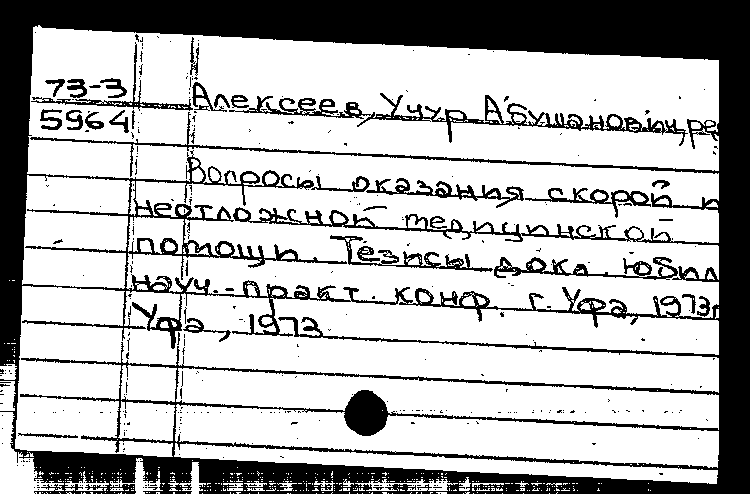 73-3
5964
Алексеев, Учур Абушанович, ре
Вопросы оказания скорой и
неотложной медицинской
помощи. Тезисы докл. юбил
науч.-практ. конф. г. Уфа, 1973г
Уфа, 1973